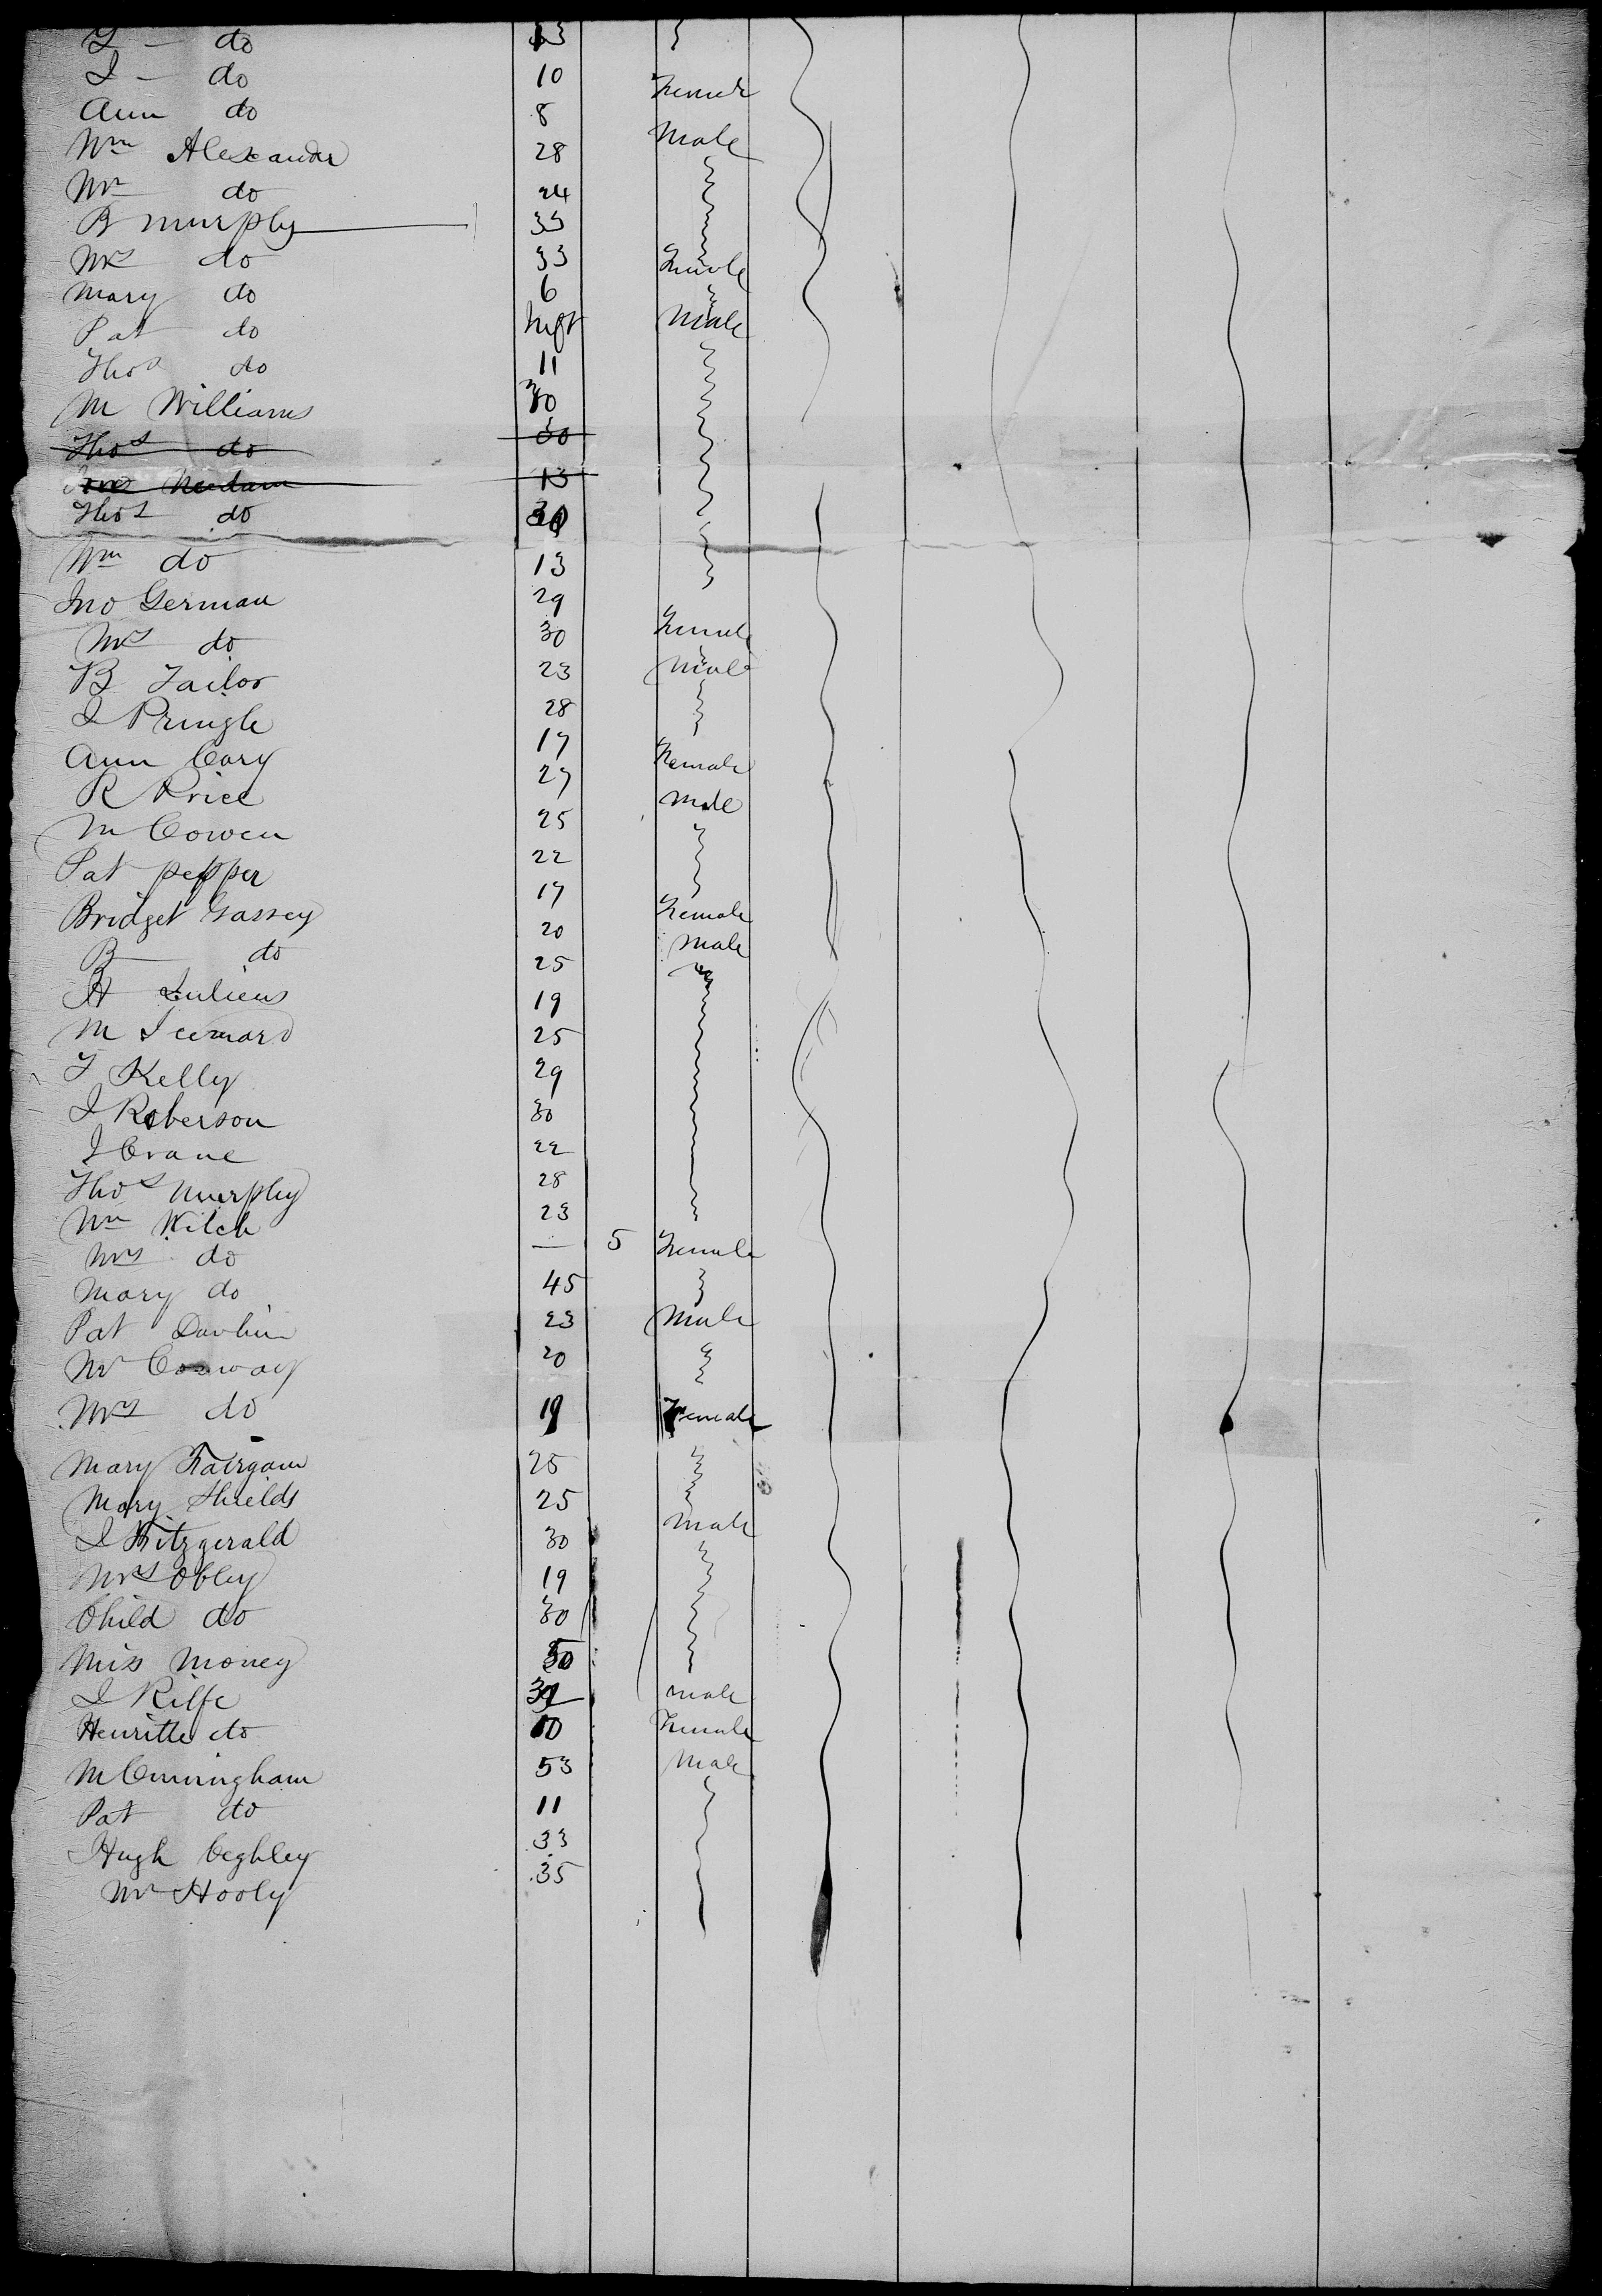 T - do 13
I - do 10 Female
Ann do 8
Wm Alexander 28 Male
Mr do 24
B Murphy 33
Mrs do 33 Female
Mary do 6
Pat do Inft Male
Thos do 11
M Williams 30
Thos do 30
13
Thos do 30
Wm do 13
Jno German 29
Mrs do 30 Female
B Tailor 23 Male
I Pringle 28
Ann Cary 17 Female
R Price 27 Male
M Cowen 25
Pat pepper 22
Bridget Gassey 17 Female
B do 20 Male
H Juliens 25
M 19
T Kelly 25
I Roberson 29
I Crane 30
Thos Murphy 22
Wm Kilch 28
Mrs do 23
Mary do — 5 Female
Pat Davlin 45
Mr Conway 23 Male
Mrs do 20
Mary Fairgam 19 Female
Mary Shields 25
I Fitzgerald 25 Male
Mrs Obley 30
Child do 19
Miss Money 30
I Rilfe 50
Henritte do 32 male
M Cunningham 10 Female
Pat do 53 Male
Hugh Ceghley 11
Mr Hooly 33
35